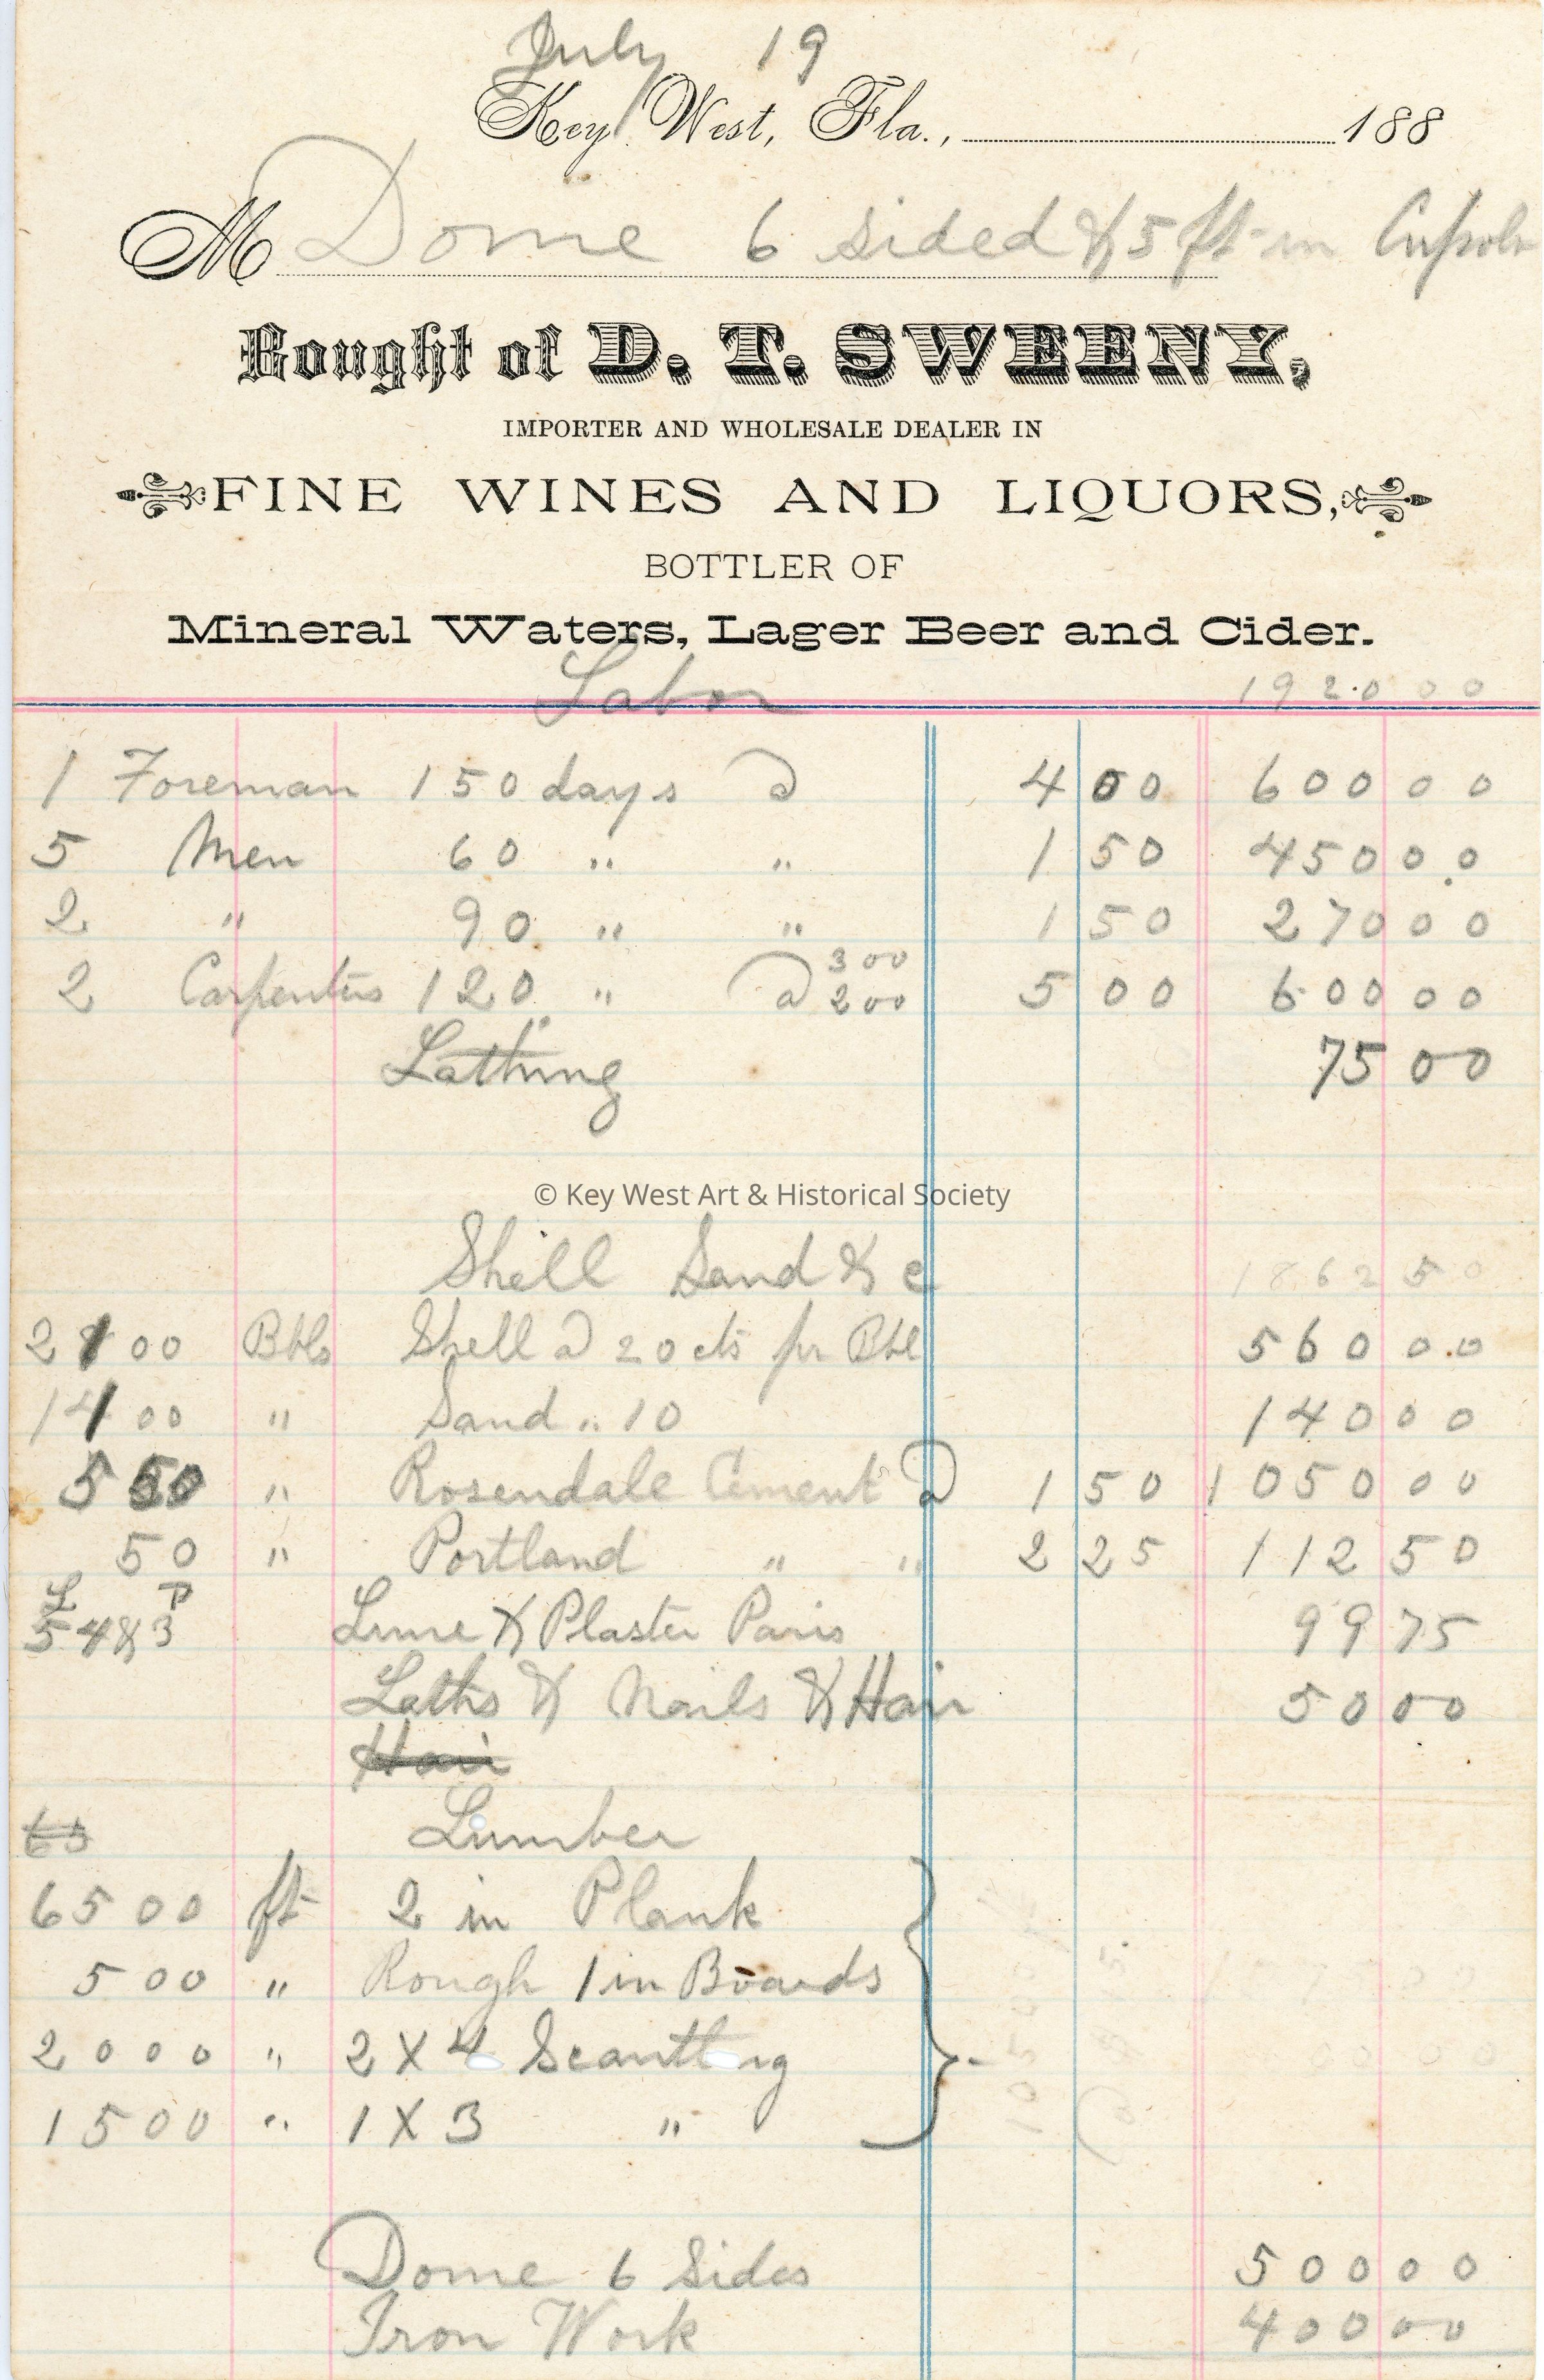 July 19
Key West, Fla., 188
M Dome 6 sided & 5 ft in Cupola
Bought of D. T. SWEENY,
IMPORTER AND WHOLESALE DEALER IN
FINE WINES AND LIQUORS,
BOTTLER OF
Mineral Waters, Lager Beer and Cider.
Labor 1920 00
1 Foreman 150 days @ 4 00 600 00
5 Men 60 " " 1 50 450 00
2 " 90 " " 1 50 270 00
2 Carpenters 120 " @ 3 00 2 00 5 00 600 00
Lathing 75 00
© Key West Art & Historical Society
Shell Sand & c 1862 50
00 Bbls Shell @ 20 cts pr Bbl 560 00
00 " Sand " 10 140 00
550 " Rosendale Cement @ 1 50 1050 00
50 " Portland " " 2 25 112 50
L P
54 & 3 Lime & Plaster Paris 99 75
Laths & Nails & Hair 50 00
Hair
65 Lumber
6500 ft 2 in Plank
500 " Rough 1 in Boards
2000 " 2 X 4 Scantling
1500 " 1 X 3 "
Dome 6 Sides 500 00
Iron Work 400 00